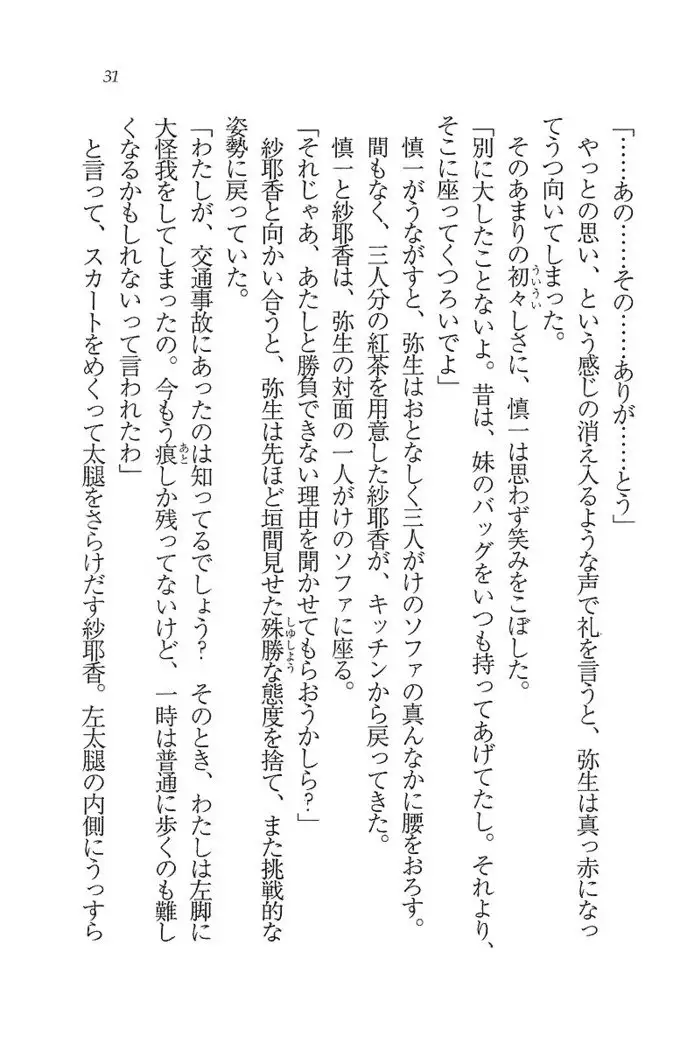 31
「……あの……その……ありが……とう」
やっとの思い、という感じの消え入るような声で礼を言うと、弥生は真っ赤になっ
てうつ向いてしまった。
そのあまりの初々しさに、慎一は思わず笑みをこぼした。
「別に大したことないよ。昔は、妹のバッグをいつも持ってあげてたし。それより、
そこに座ってくつろいでよ」
慎一がうながすと、弥生はおとなしく三人がけのソファの真んなかに腰をおろす。
間もなく、三人分の紅茶を用意した紗耶香が、キッチンから戻ってきた。
慎一と紗耶香は、弥生の対面の一人がけのソファに座る。
「それじゃあ、あたしと勝負できない理由を聞かせてもらおうかしら？」
紗耶香と向かい合うと、弥生は先ほど垣間見せた殊勝な態度を捨て、また挑戦的な
姿勢に戻っていた。
「わたしが、交通事故にあったのは知ってるでしょう？　そのとき、わたしは左脚に
大怪我をしてしまったの。今もう痕しか残ってないけど、一時は普通に歩くのも難し
くなるかもしれないって言われたわ」
と言って、スカートをめくって太腿をさらけだす紗耶香。左太腿の内側にうっすら
ういうい
しゅしょう
あと